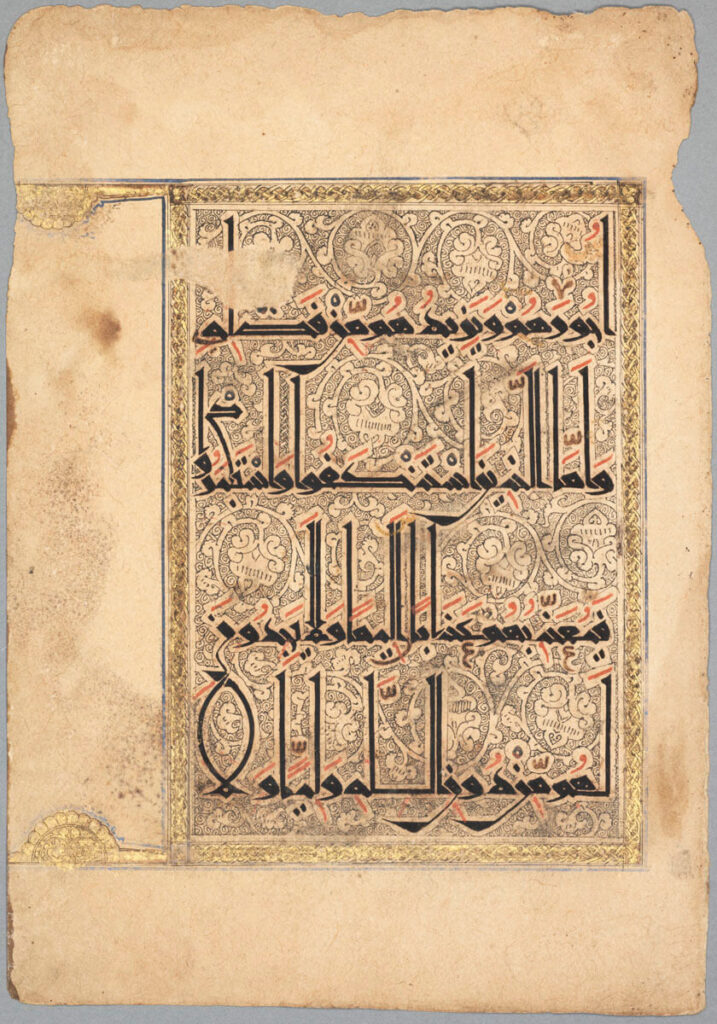 أُجُورَهُمْ وَيَزِيدُهُمْ مِّنْ فَضْلِهِ
وَأَمَّا الَّذِينَ اسْتَنْكَفُوا وَاسْتَكْبَرُوا
فَيُعَذِّبُهُمْ عَذَابًا أَلِيمًا وَلَا يَجِدُونَ
لَهُمْ مِّنْ دُونِ اللَّهِ وَلِيًّا وَلَا